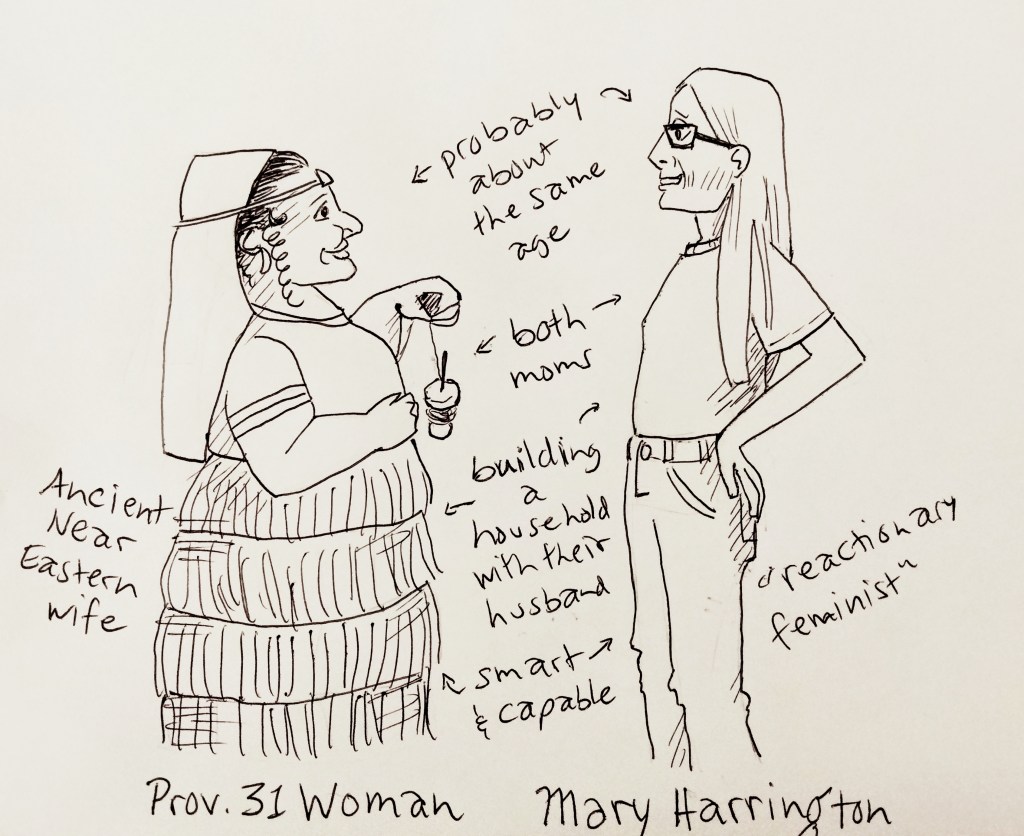 probably
about
the same
age
both
moms
building
a
household
with their
husband
smart
& capable
Ancient
Near
Eastern
wife
"reactionary
feminist"
Prov. 31 Woman
Mary Harrington